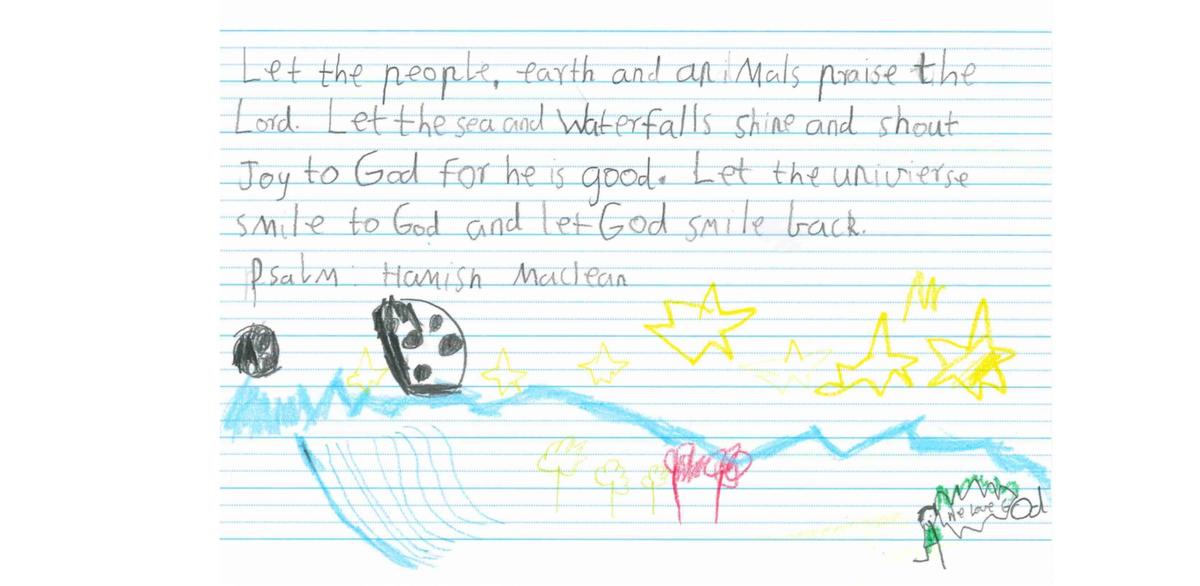 Let the people, earth and animals praise the
Lord. Let the sea and Waterfalls shine and shout
Joy to God for he is good. Let the univierse
smile to God and let God smile back.
Psalm: Hamish Maclean
We Love GOd